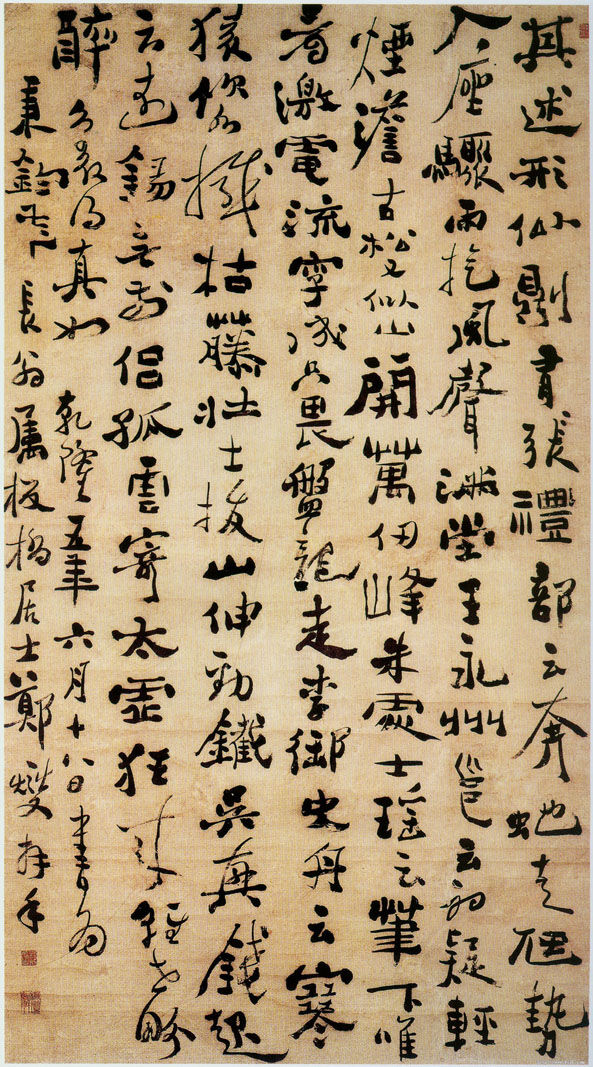 其述形似則有張禮部云奔虵走虺勢
入座驟雨旋風聲滿堂王永州邕云初疑輕
煙澹古松又似山開萬仞峰朱處士瑤云筆下唯
看激電流字成只畏盤龍走李御史舟云寒
猿飲水撼枯藤壯士拔山伸勁鐵吳興錢起
云遠錫無前侶孤雲寄太虛狂來輕世界
醉裏得真如 乾隆五年六月十八日書為
秉鈞老長翁屬板橋居士鄭燮拜手